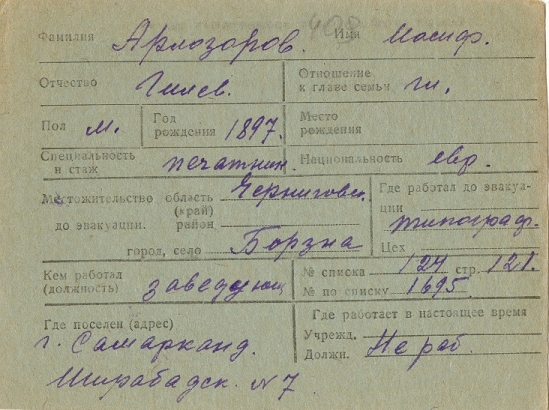 Фамилия Арлозоров. Имя Иосиф.
Отчество Гилев. Отношение к главе семьи гл.
Пол м. Год рождения 1897. Место рождения
Специальность и стаж печатник. Национальность евр.
Местожительство область Черниговск. Где работал до эвакуации
(край)
до эвакуации. район типограф.
город, село Борзна Цех
Кем работал (должность) заведующ № списка 124 стр. 121.
№ по списку 1695.
Где поселен (адрес) Где работает в настоящее время
г. Самарканд. Учрежд.
Должн. Не раб.
Ширабадск. № 7